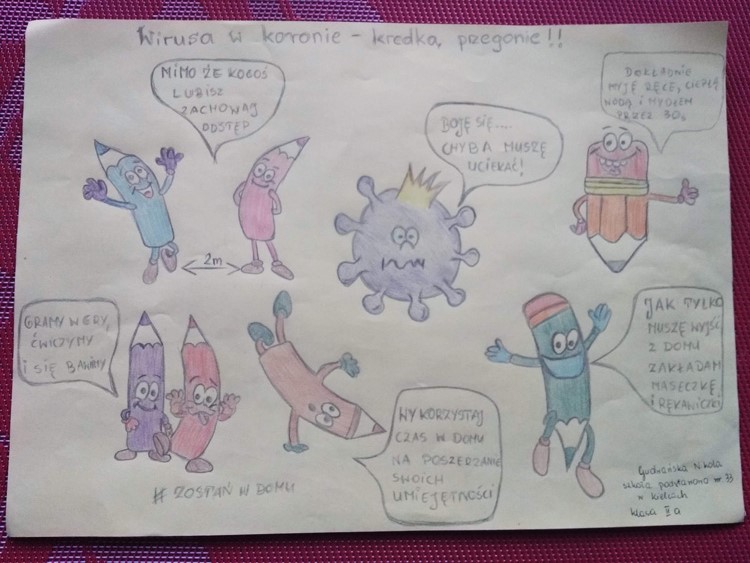 Wirusa w koronie - kredka, przegonie!!
MIMO ŻE KOGOŚ
LUBISZ
ZACHOWAJ
ODSTĘP
BOJĘ SIĘ....
CHYBA MUSZĘ
UCIEKAĆ!
DOKŁADNIE
MYJĘ RĘCE, CIEPŁĄ
WODĄ I MYDŁEM
PRZEZ 30s
2m
GRAMY W GRY,
ĆWICZYMY
i SIĘ BAWIMY
WYKORZYSTAJ
CZAS W DOMU
NA POSZERZANIE
SWOICH
UMIEJĘTNOŚCI
JAK TYLKO
MUSZĘ WYJŚĆ
Z DOMU
ZAKŁADAM
MASECZKĘ
i RĘKAWICZKI
# ZOSTAŃ W DOMU
Nikola
szkoła podstawowa nr 33
w Kielcach
klasa II a